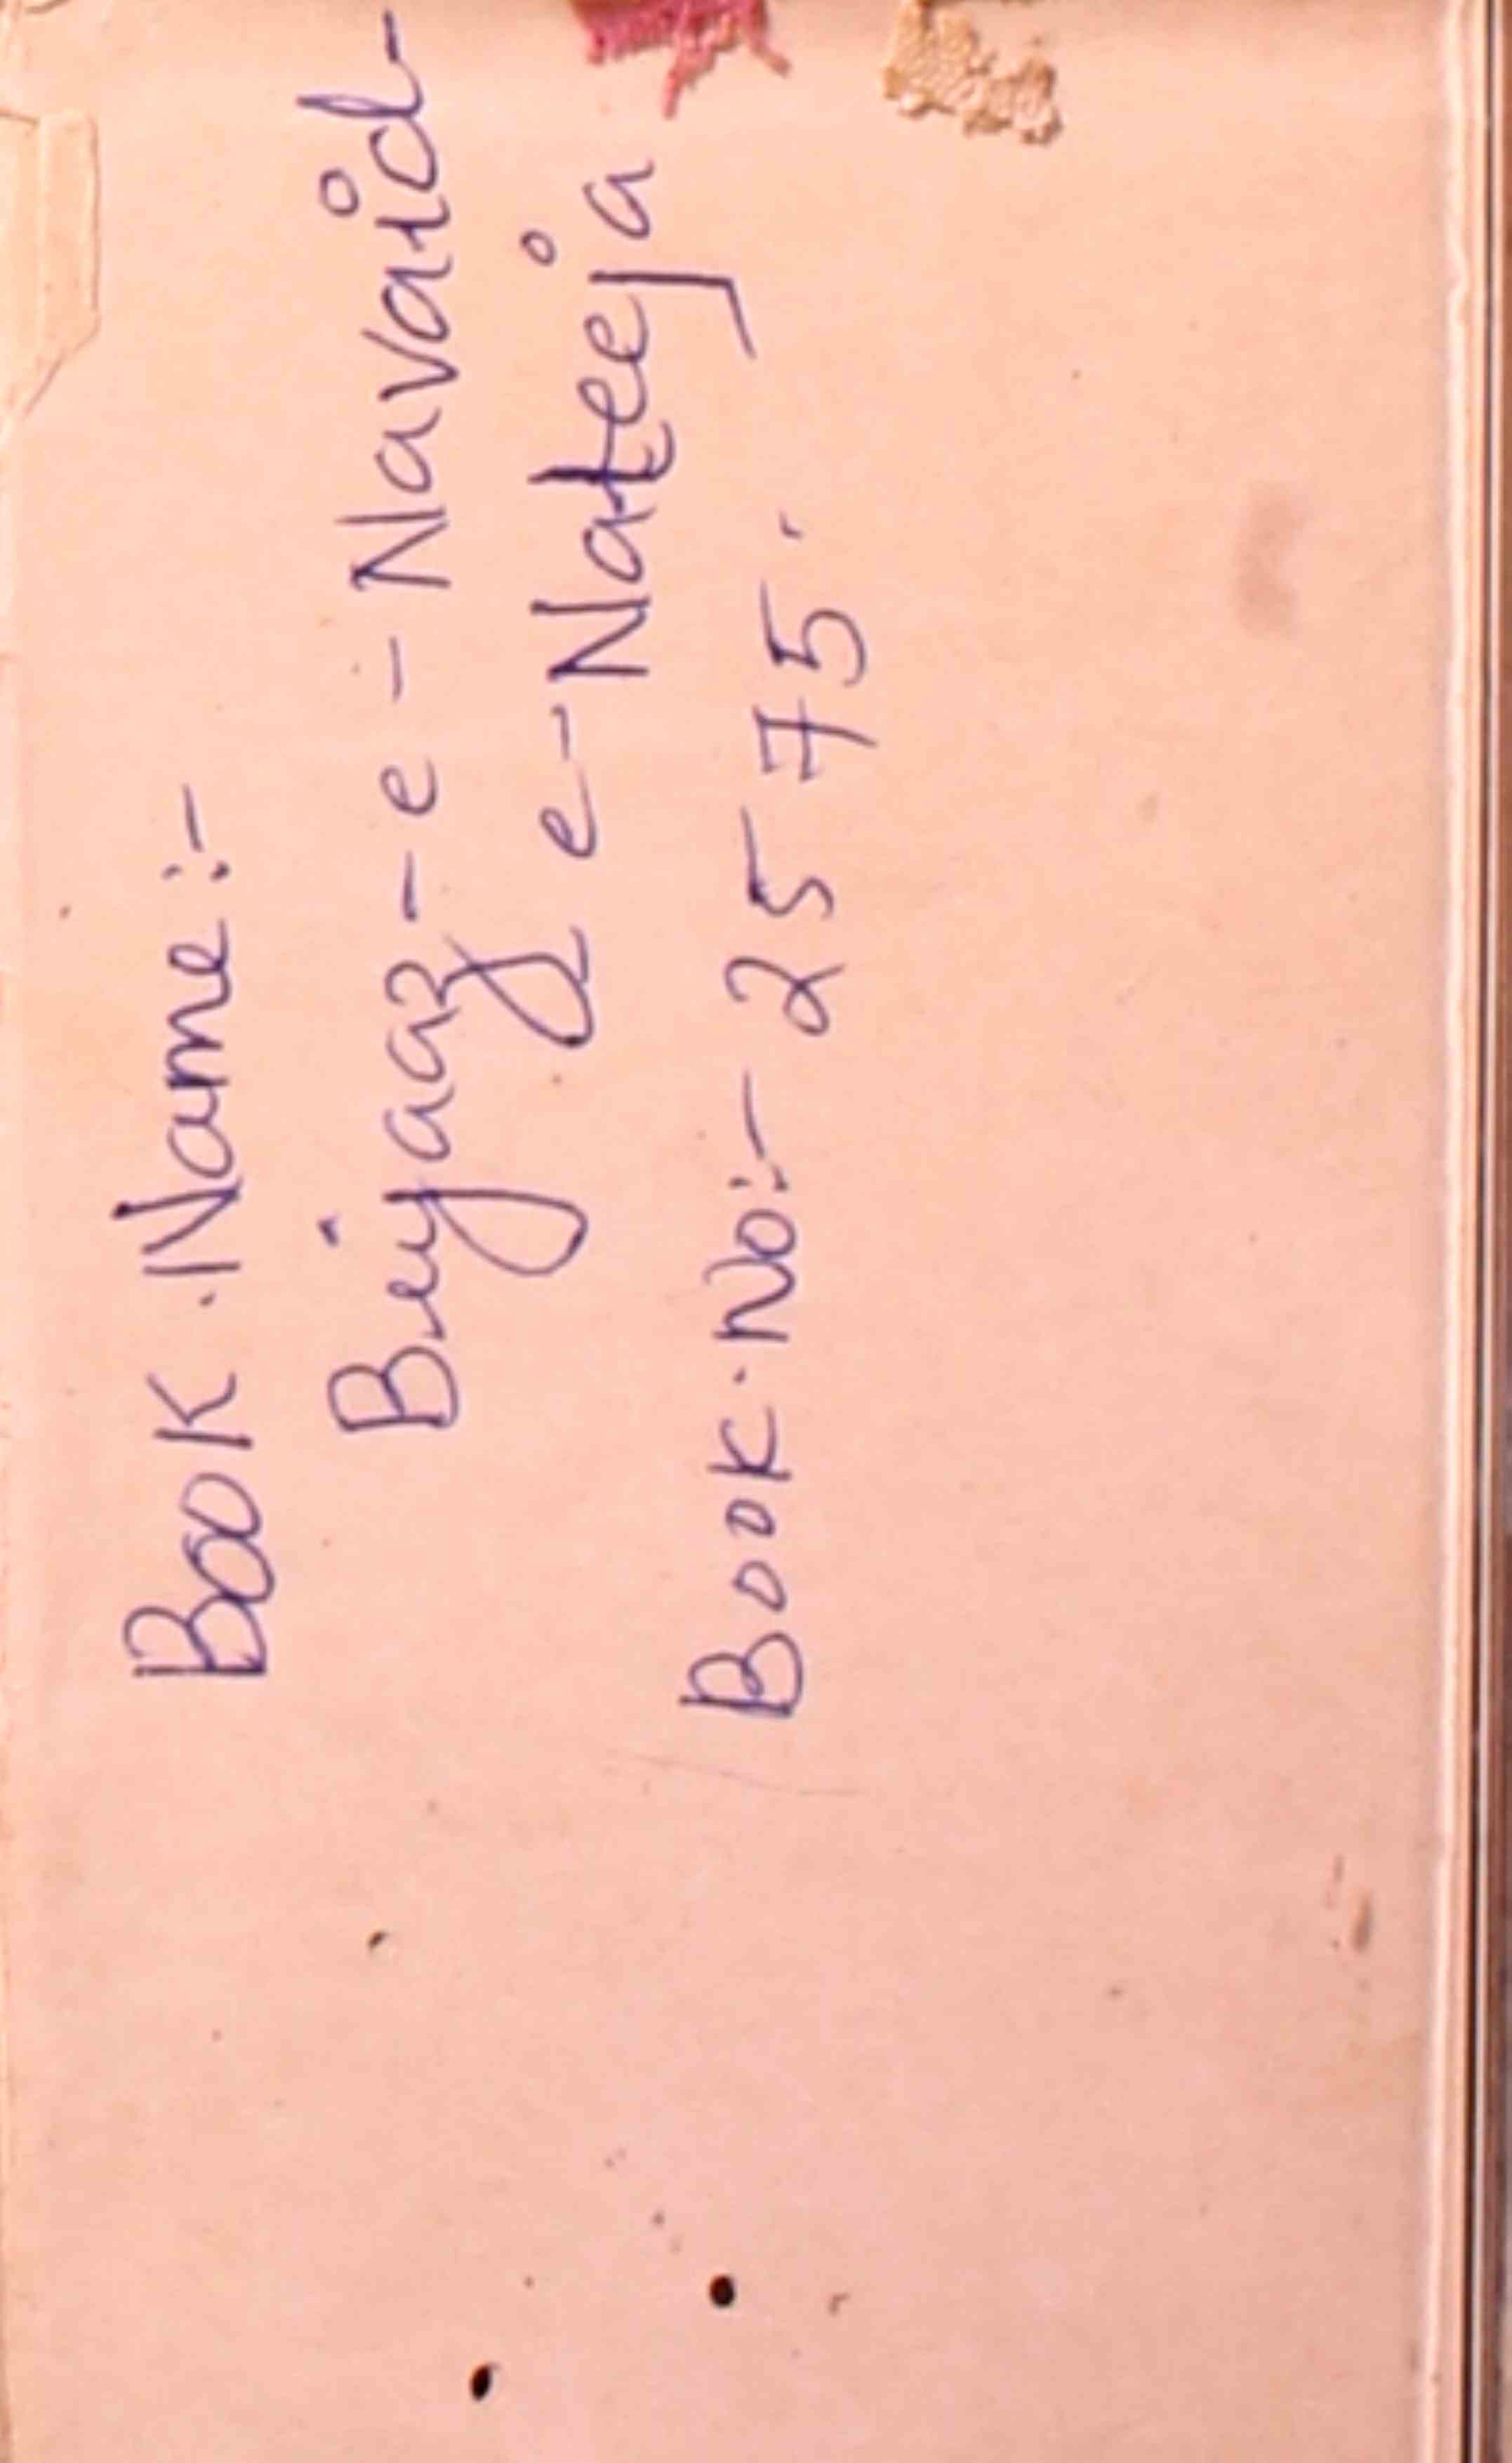 Book.Name:-
Biyaaz-e-Navaid-
e-Nateeja
Book.No:- 2575.